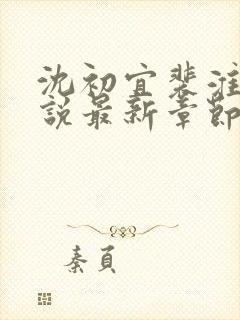 沈初宜裴淮
說最新章節
秦頁